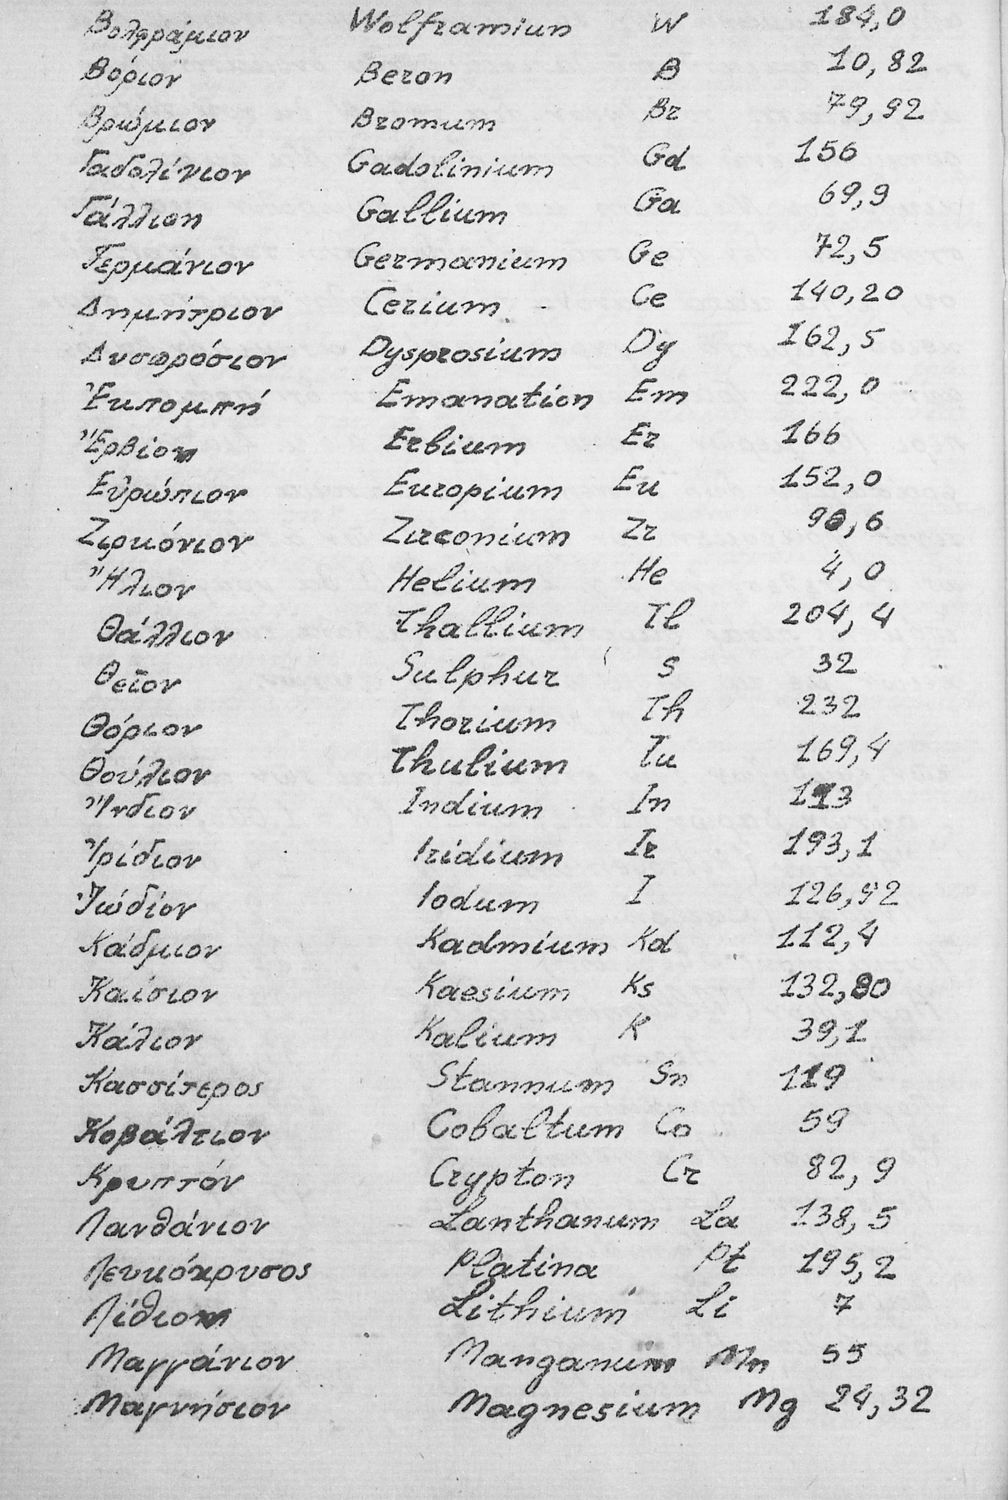 Βολφράμιον Wolframiun W 184,0
Βόριον Beron B 10,82
Βρώμιον Bromum Br 79,92
Γαδολίνιον Gadolinium Gd 156
Γάλλιον Gallium Ga 69,9
Γερμάνιον Germanium Ge 72,5
Δημήτριον Cerium Ce 140,20
Δυσπρόσιον Dysprosium Dy 162,5
Ἐκπομπή Emanation Em 222,0
Ἔρβιον Erbium Er 166
Εὐρώπιον Europium Eu 152,0
Ζιρκόνιον Zirconium Zr 90,6
Ἥλιον Helium He 4,0
Θάλλιον Thallium Tl 204,4
Θεῖον Sulphur S 32
Θόριον Thorium Th 232
Θούλιον Thulium Tu 169,4
Ἴνδιον Indium In 113
Ἰρίδιον Iridium Ir 193,1
Ἰώδίον Iodum I 126,92
Κάδμιον Kadmium Kd 112,4
Καίσιον Kaesium Ks 132,80
Κάλιον Kalium K 39,1
Κασσίτερος Stannum Sn 119
Κοβάλτιον Cobaltum Co 59
Κρυπτόν Crypton Cr 82,9
Λανθάνιον Lanthanum La 138,5
Λευκόχρυσος Platina Pt 195,2
Λίθιον Lithium Li 7
Μαγγάνιον Manganum Mn 55
Μαγνήσιον Magnesium Mg 24,32